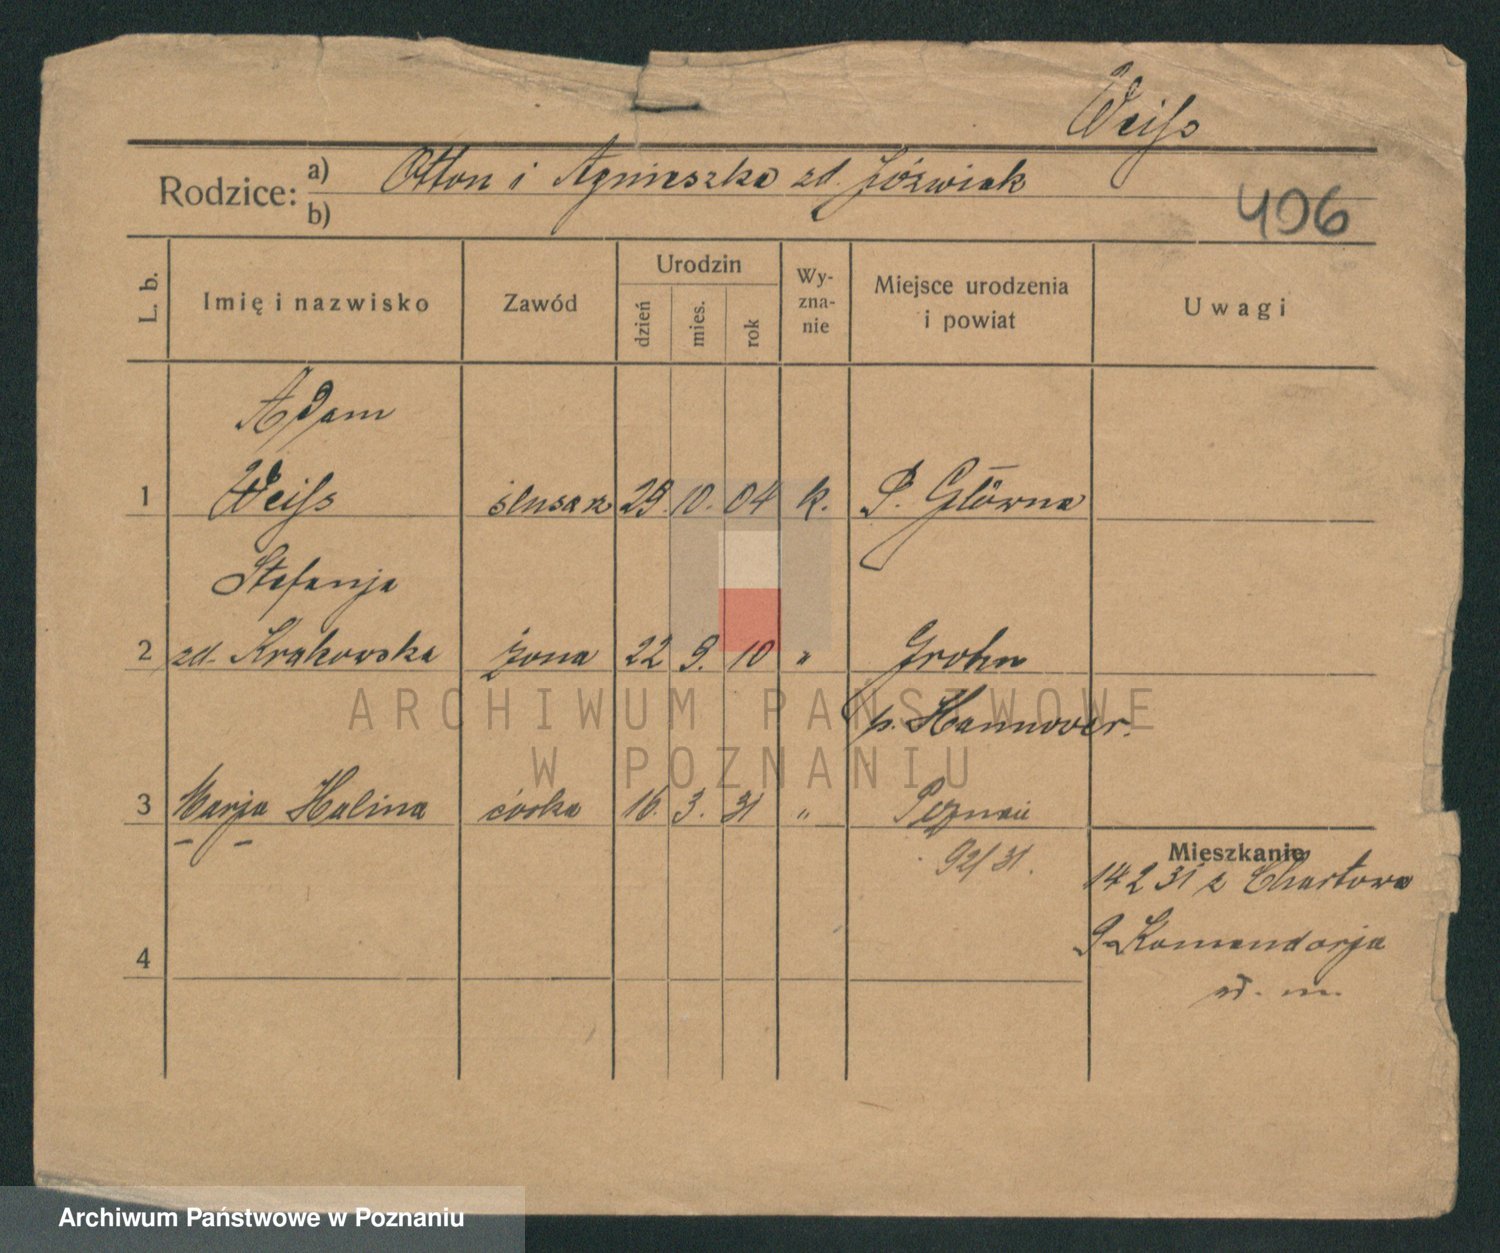 Weiss
Rodzice: a) Otton i Agnieszka zd. Jóźwiak
b)
406
L. b. Imię i nazwisko Zawód Urodzin dzień mies. rok Wy-zna-nie Miejsce urodzenia i powiat Uwagi
Adam
1 Weiss ślusarz 29. 10. 04 k. P. Główna
Stefanja
2 zd. Krakowska żona 22 9. 10 " Grohn
p. Hannover.
3 Marja Halina córka 16. 3. 31 " Poznań
92/31.
Mieszkanie
14 2 31 z Chartowa
Komandorja
4
ARCHIWUM PAŃSTWOWE
W POZNANIU
Archiwum Państwowe w Poznaniu